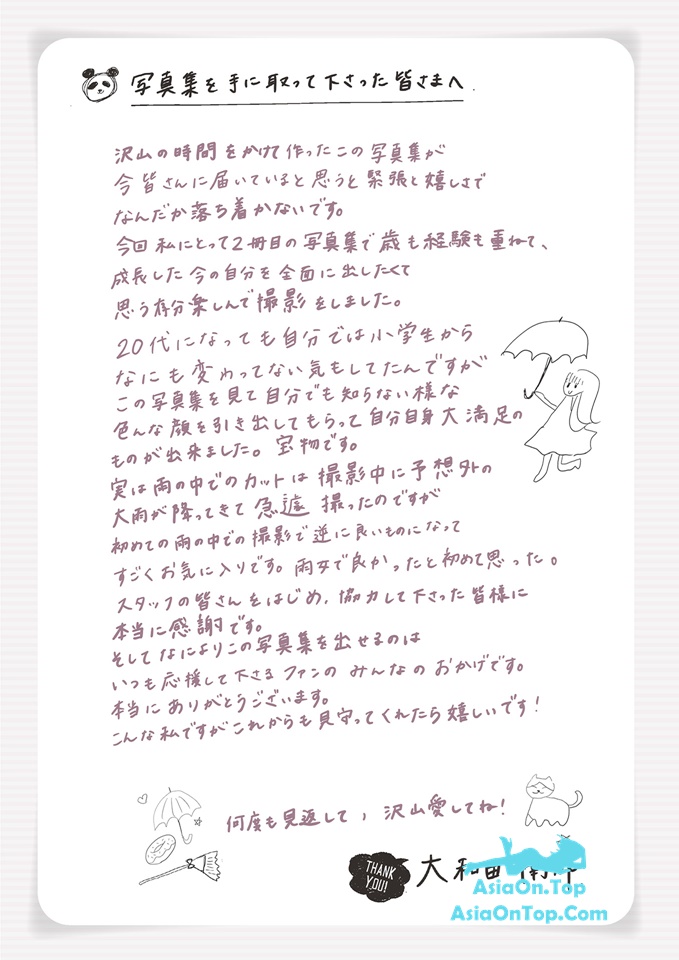 写真集を手に取って下さった皆さまへ
沢山の時間をかけて作ったこの写真集が
今皆さんに届いていると思うと緊張と嬉しさで
なんだか落ち着かないです。
今回私にとって2冊目の写真集で歳も経験も重ねて、
成長した今の自分を全面に出したくて
思う存分楽しんで撮影をしました。
20代になっても自分では小学生から
なにも変わってない気もしてたんですが
この写真集を見て自分でも知らない様な
色んな顔を引き出してもらって自分自身大満足の
ものが出来ました。宝物です。
実は雨の中でのカットは撮影中に予想外の
大雨が降ってきて急遽撮ったのですが
初めての雨の中での撮影で逆に良いものになって
すごくお気に入りです。雨女で良かったと初めて思った。
スタッフの皆さんをはじめ、協力して下さった皆様に
本当に感謝です。
そしてなによりこの写真集を出せるのは
いつも応援して下さるファンのみんなのおかげです。
本当にありがとうございます。
こんな私ですがこれからも見守ってくれたら嬉しいです！
何度も見返して、沢山愛してね！
THANK
YOU!
大和田
AsiaOn.Top
AsiaOnTop.Com